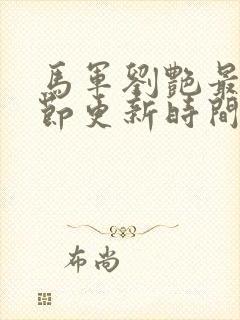 馬軍劉艷最
節更新時間
布尚